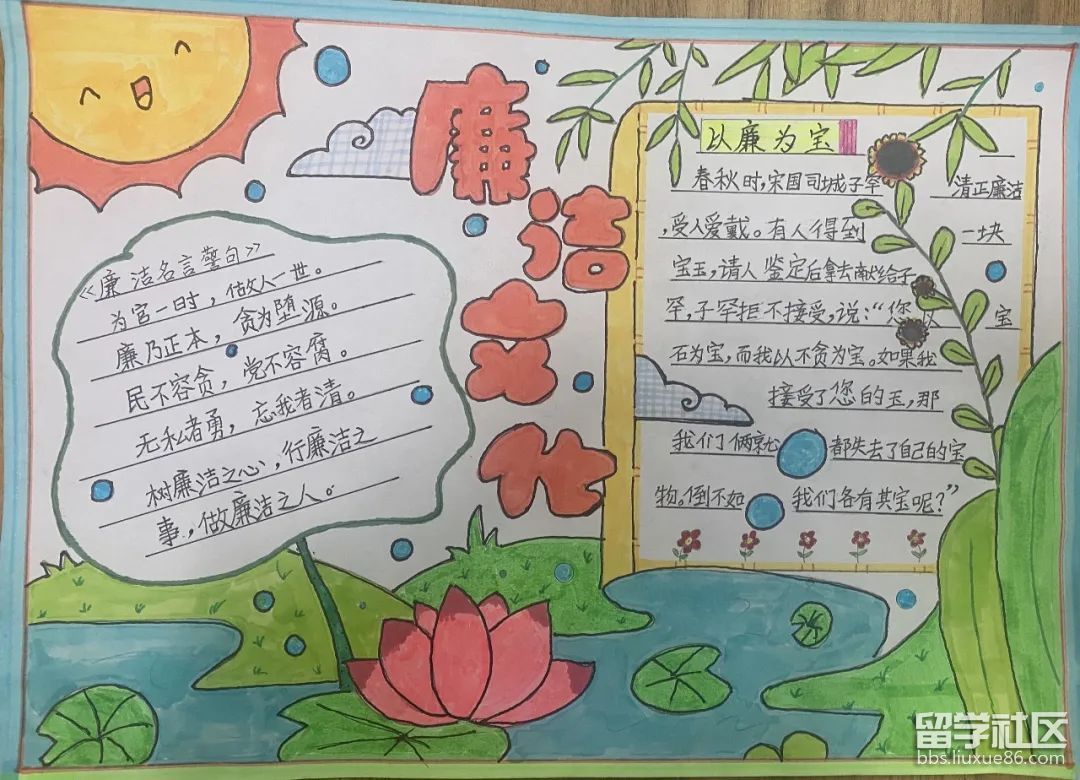 廉洁文化
《廉洁名言警句》
为官一时，做人一世。
廉乃正本，贪为堕源。
民不容贪，党不容腐。
无私者勇，忘我者清。
树廉洁之心，行廉洁之
事，做廉洁之人。
以廉为宝
春秋时，宋国司城子罕 清正廉洁
，受人爱戴。有人得到 一块
宝玉，请人鉴定后拿去献给子
罕，子罕拒不接受，说：“您以 宝
石为宝，而我以不贪为宝。如果我
接受了您的玉，那
我们俩就 都失去了自己的宝
物。倒不如 我们各有其宝呢？”
留学社区
bbs.liuxue86.com